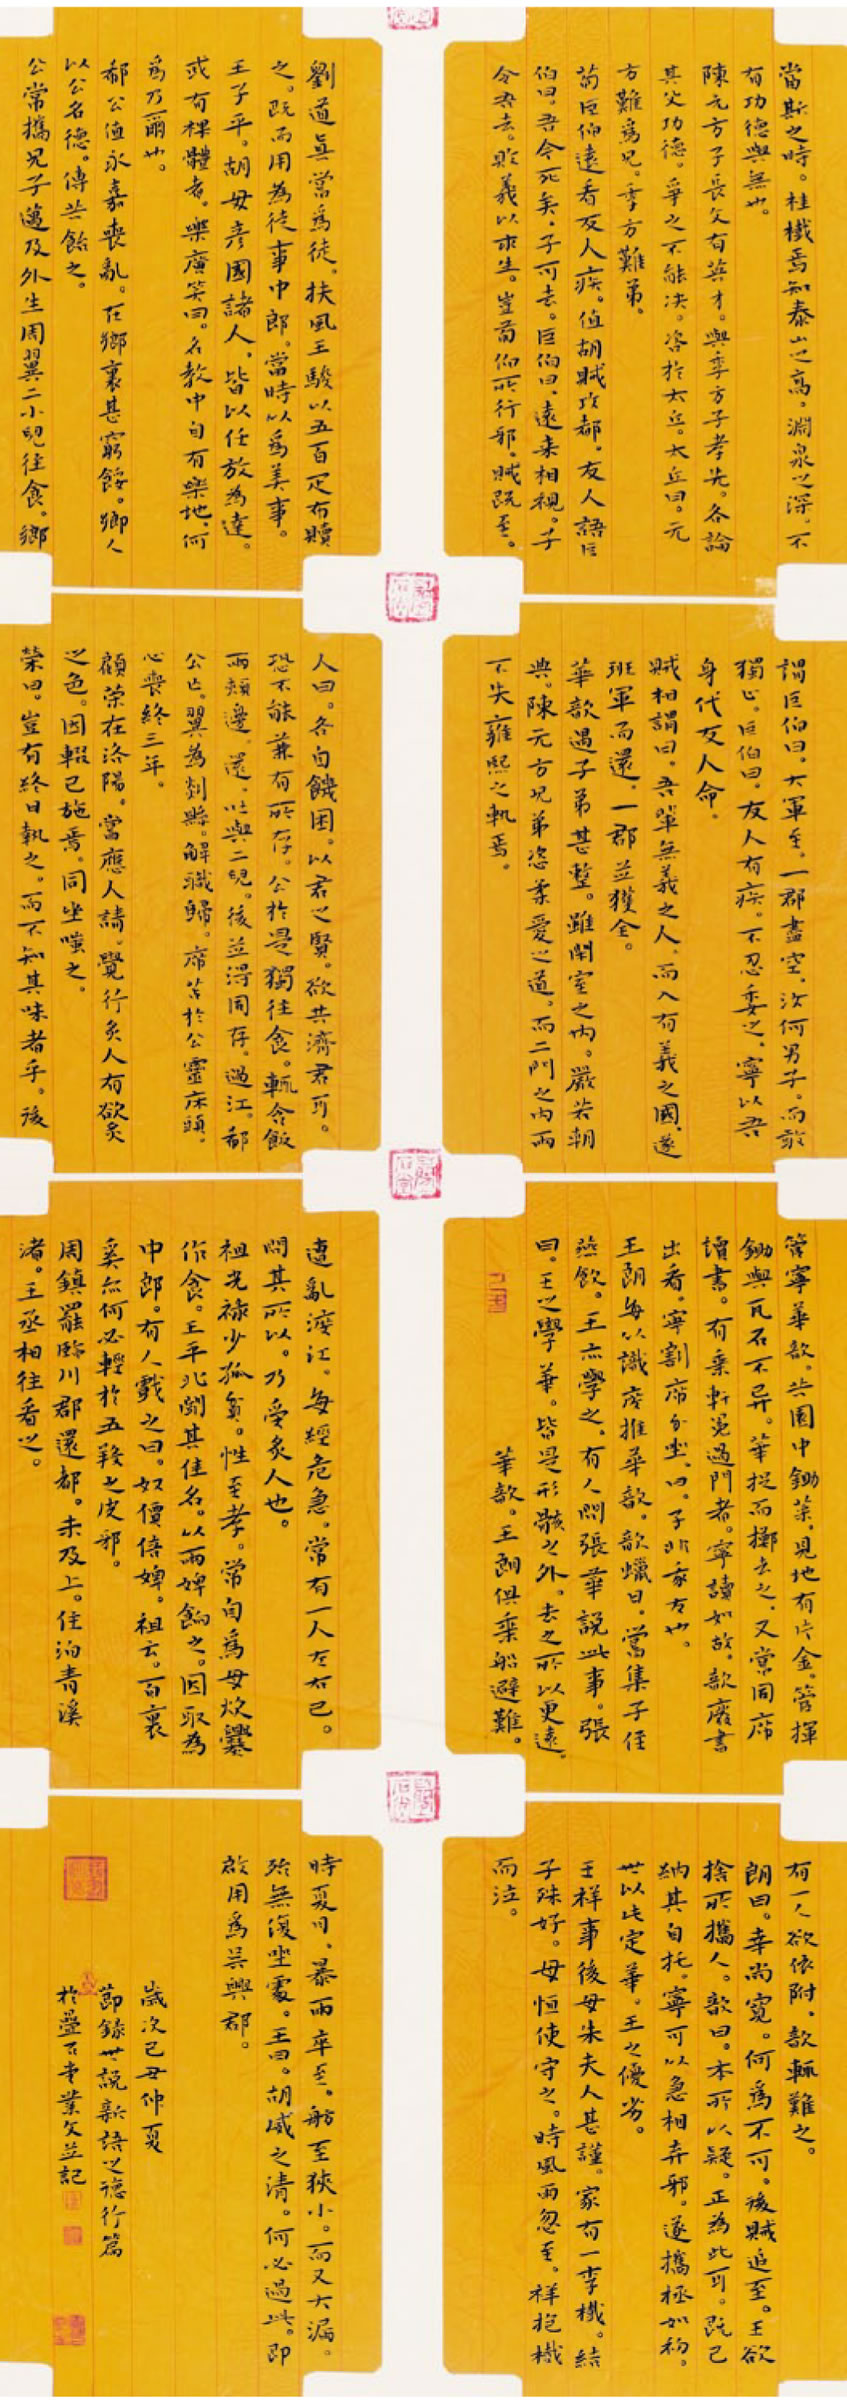 當斯之時。桂樹焉知泰山之高。淵泉之深。不
有功德與無也。
陳元方子長文有英才。與季方子孝先。各論
其父功德。爭之不能決。咨於太丘。太丘曰。元
方難為兄。季方難弟。
荀巨伯遠看友人疾。值胡賊攻郡。友人語巨
伯曰。吾今死矣。子可去。巨伯曰。遠來相視。子
令吾去。敗義以求生。豈荀伯所行邪。賊既至。
謂巨伯曰。大軍至。一郡盡空。汝何男子。而敢
獨止。巨伯曰。友人有疾。不忍委之。寧以吾
身代友人命。
賊相謂曰。吾輩無義之人。而入有義之國。遂
班軍而還。一郡並獲全。
華歆遇子弟甚整。雖閑室之內。嚴若朝
典。陳元方兄弟恣柔愛之道。而二門之內兩
不失雍熙之軌焉。
管寧華歆。共園中鋤菜。見地有片金。管揮
鋤與瓦石不異。華捉而擲去之。又嘗同席
讀書。有乘軒冕過門者。寧讀如故。歆廢書
出看。寧割席分坐。曰。子非吾友也。
王朗每以識度推華歆。歆蠟日。嘗集子侄
燕飲。王亦學之。有人問張華說此事。張
曰。王之學華。皆是形骸之外。去之所以更遠。
華歆。王朗俱乘船避難。
有一人欲依附。歆輒難之。
朗曰。幸尚寬。何為不可。後賊追至。王欲
捨所攜人。歆曰。本所以疑。正為此耳。既已
納其自托。寧可以急相弃邪。遂攜拯如初。
世以此定華。王之優劣。
王祥事後母朱夫人甚謹。家有一李樹。結
子殊好。母恒使守之。時風雨忽至。祥抱樹
而泣。
劉道真嘗為徒。扶風王駿以五百疋布贖
之。既而用為從事中郎。當時以為美事。
王子平。胡毋彥國諸人。皆以任放為達。
或有裸體者。樂廣笑曰。名教中自有樂地。何
為乃爾也。
郗公值永嘉喪亂。在鄉裏甚窮餒。鄉人
以公名德。傳共飴之。
公常攜兄子邁及外生周翼二小兒往食。鄉
人曰。各自饑困。以君之賢。欲共濟君耳。
恐不能兼有所存。公於是獨往食。輒含飯
兩頰邊。還。吐與二兒。後並得同存。過江。郗
公亡。翼為剡縣。解職歸。席苫於公靈床頭。
心喪終三年。
顧榮在洛陽。嘗應人請。覺行炙人有欲炙
之色。因輟己施焉。同坐嗤之。
榮曰。豈有終日執之。而不知其味者乎。後
遭亂渡江。每經危急。常有一人左右己。
問其所以。乃受炙人也。
祖光祿少孤貧。性至孝。常自為母炊爨
作食。王平北聞其佳名。以兩婢餉之。因取為
中郎。有人戲之曰。奴價倍婢。祖云。百裏
奚亦何必輕於五羖之皮邪。
周鎮罷臨川郡還都。未及上。住泊青溪
渚。王丞相往看之。
時夏月。暴雨卒至。舫至狹小。而又大漏。
殆無復坐處。王曰。胡威之清。何必過此。即
啟用為吳興郡。
歲次己丑仲夏
節錄世說新語之德行篇
於疊石堂業文並記